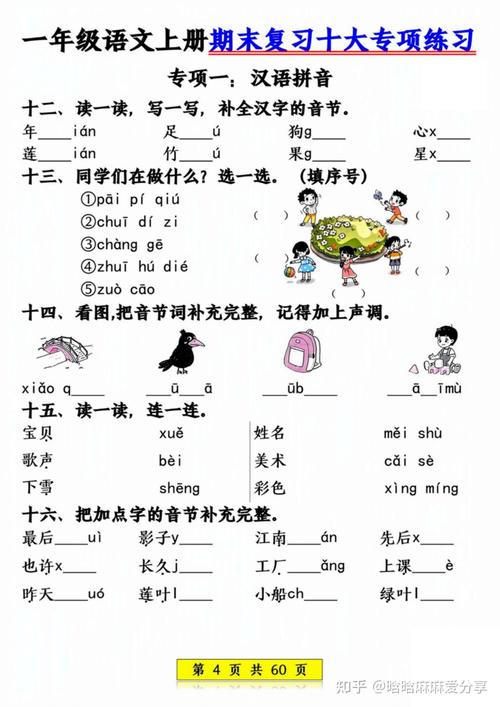 一年级语文上册期末复习十大专项练习
专项一：汉语拼音
十二、读一读，写一写，补全汉字的音节。
年____ián 足____ú 狗g____ 心x____
莲____ián 竹____ú 果g____ 星x____
十三、同学们在做什么？选一选。（填序号）
①pāi pí qiú
②chuī dí zi
③chàng gē
④zhuī hú dié
⑤zuò cāo
( ) ( )
( ) ( ) ( )
十四、看图,把音节词补充完整，记得加上声调。
xiǎo q____ ____ū____ā ____ūb____ ____ā____īmù
十五、读一读，连一连。
宝贝 xuě 姓名 měi shù
歌声 bèi 美术 cǎi sè
下雪 shēng 彩色 xìng míng
十六、把加点字的音节补充完整。
最后____uì 影子y____ 江南____án 先后x____
也许x____ 长久j____ 工厂____ǎng 上课____è
昨天____uó 莲叶l____ 小船ch____ 绿叶l____
第 4 页 共 60 页
知乎 @晗晗麻麻爱分享